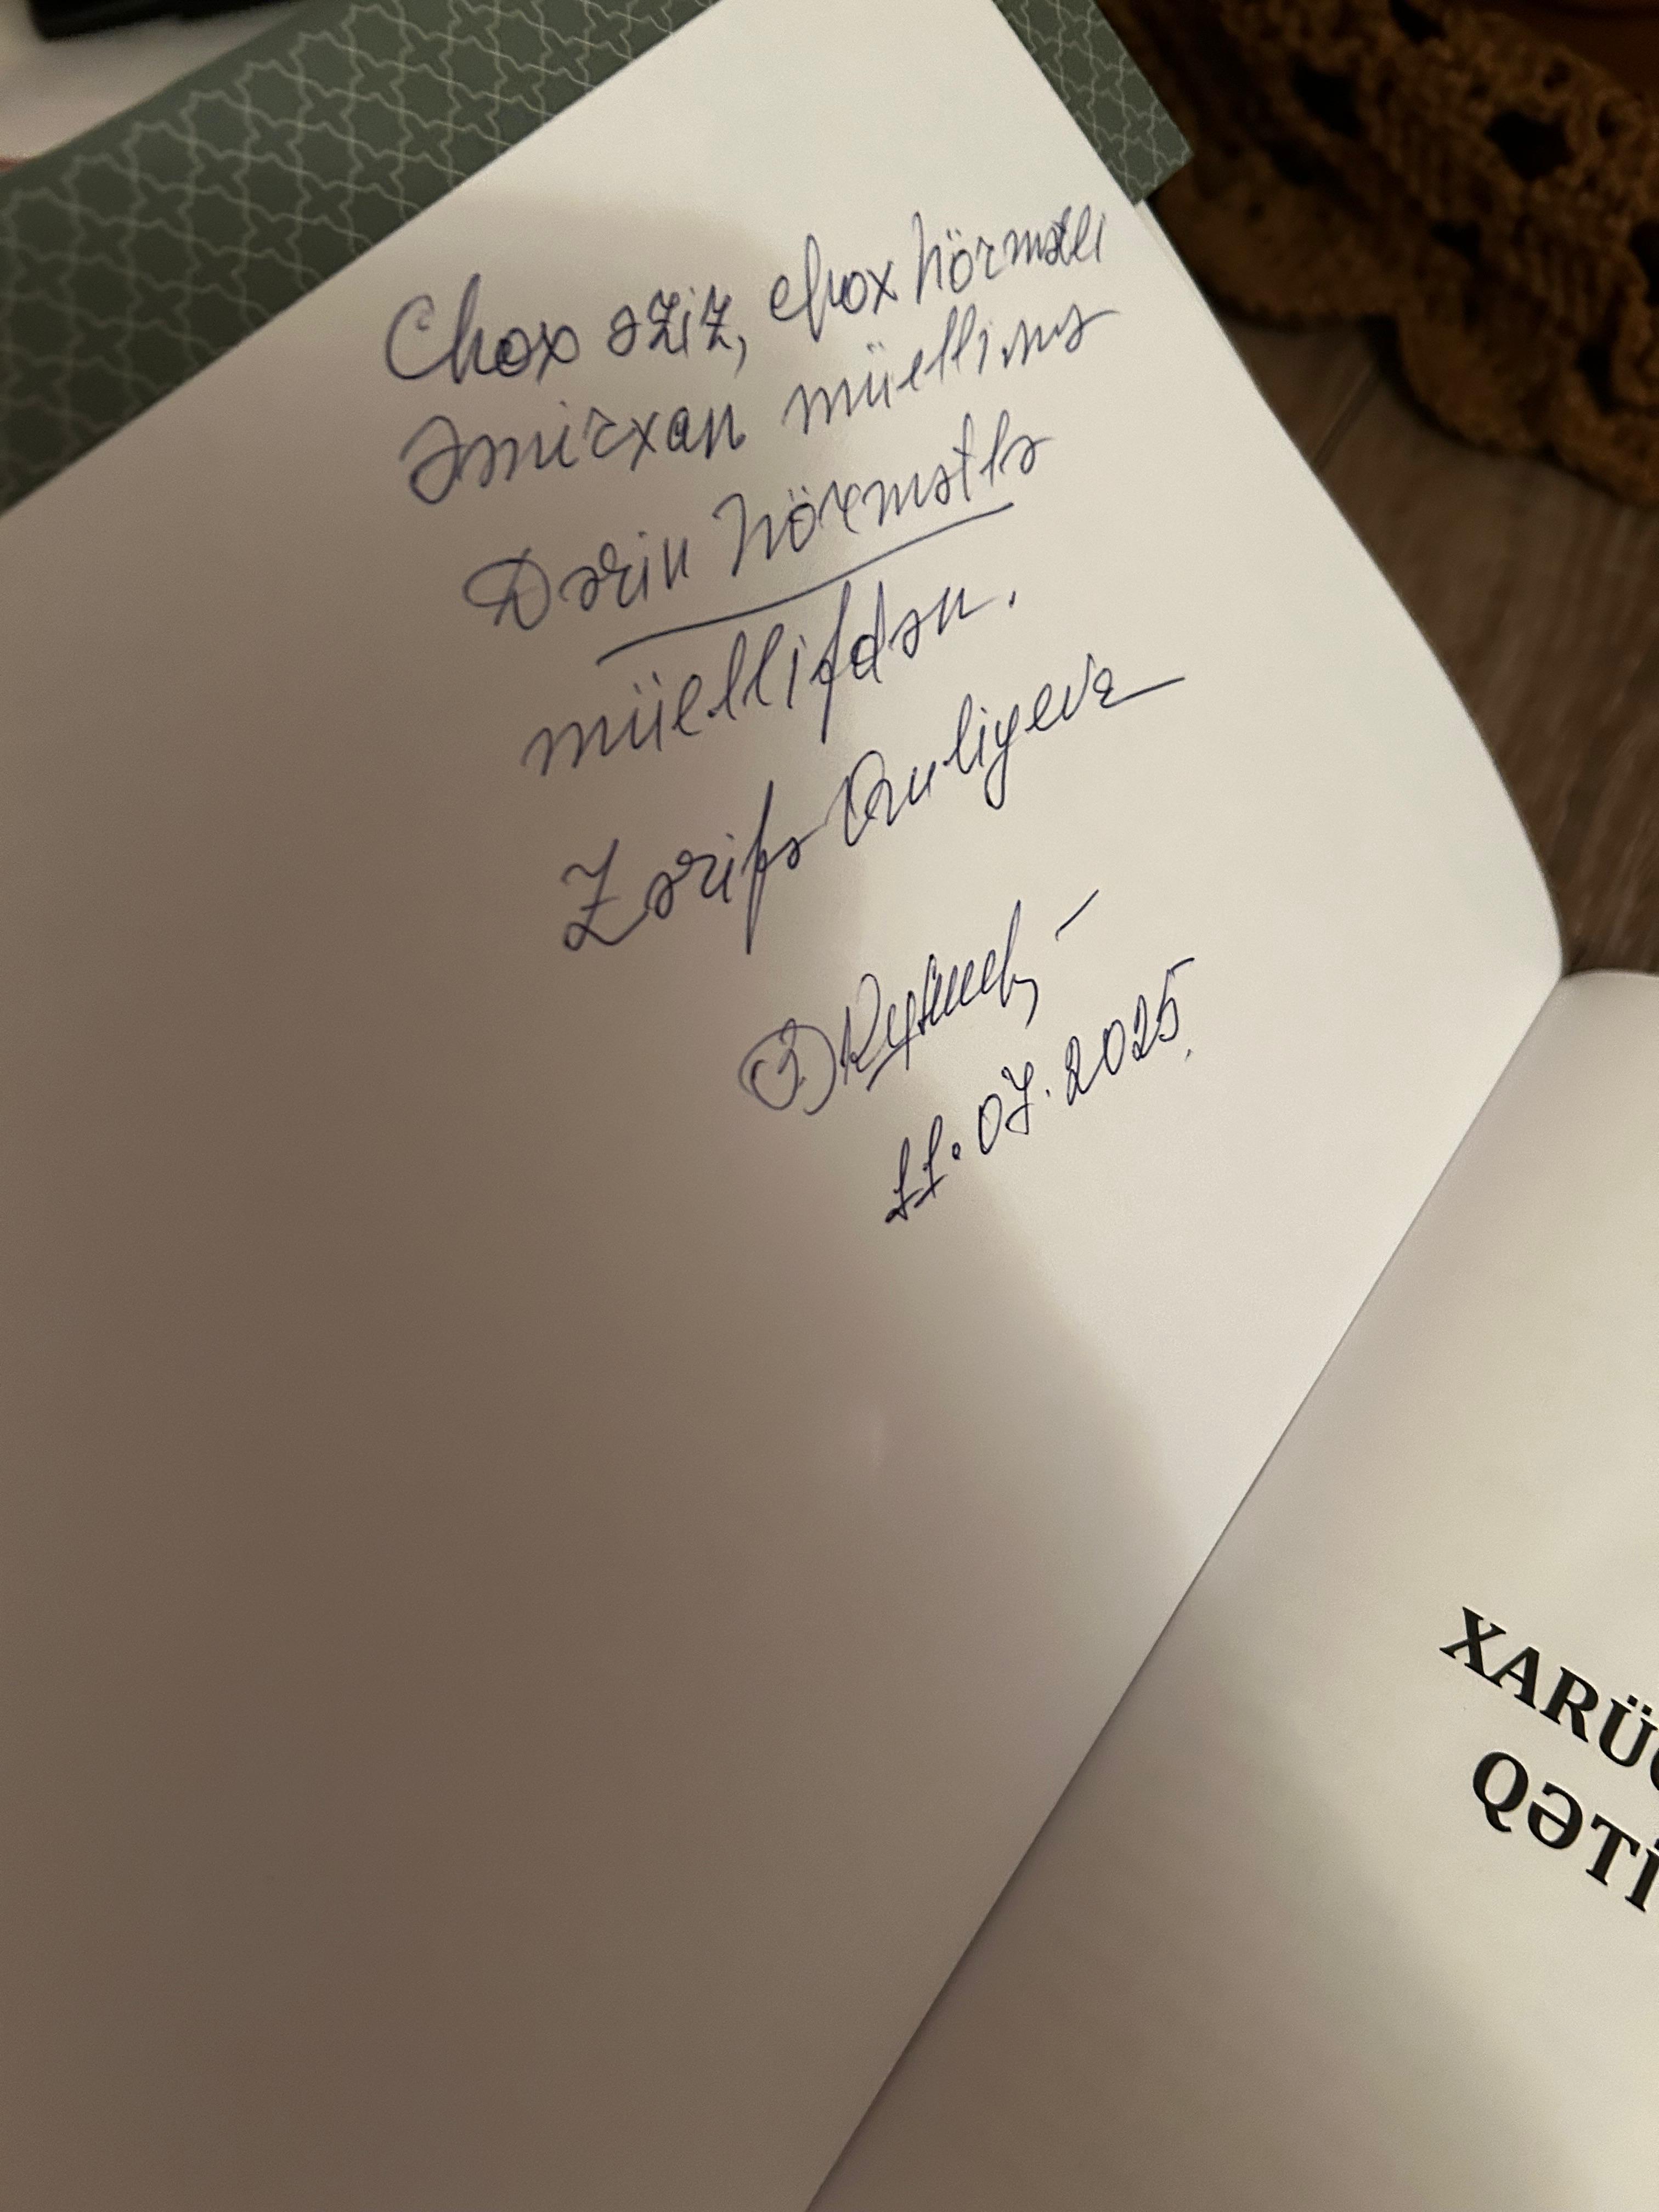 Chox əziz, chox hörmətli
Əmirxan müellimə
Dərin hörmətlə
müellifdən.
Zərifə Quliyeva
11.07.2025.
XARÜ
QƏTİ